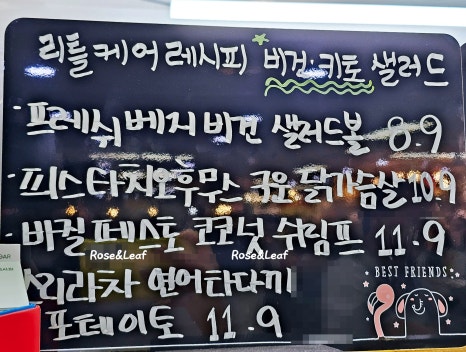 리틀케어레시피 비건·키토 샐러드
- 프레쉬베지비건 샐러드볼 8.9
- 피스타치오후무스 구운 닭가슴살 10.9
- 바질페스토 코코넛 쉬림프 11.9
Rose&Leaf Rose&Leaf
스리라차 연어타다끼
포테이토 11.9
BEST FRIENDS
BAR